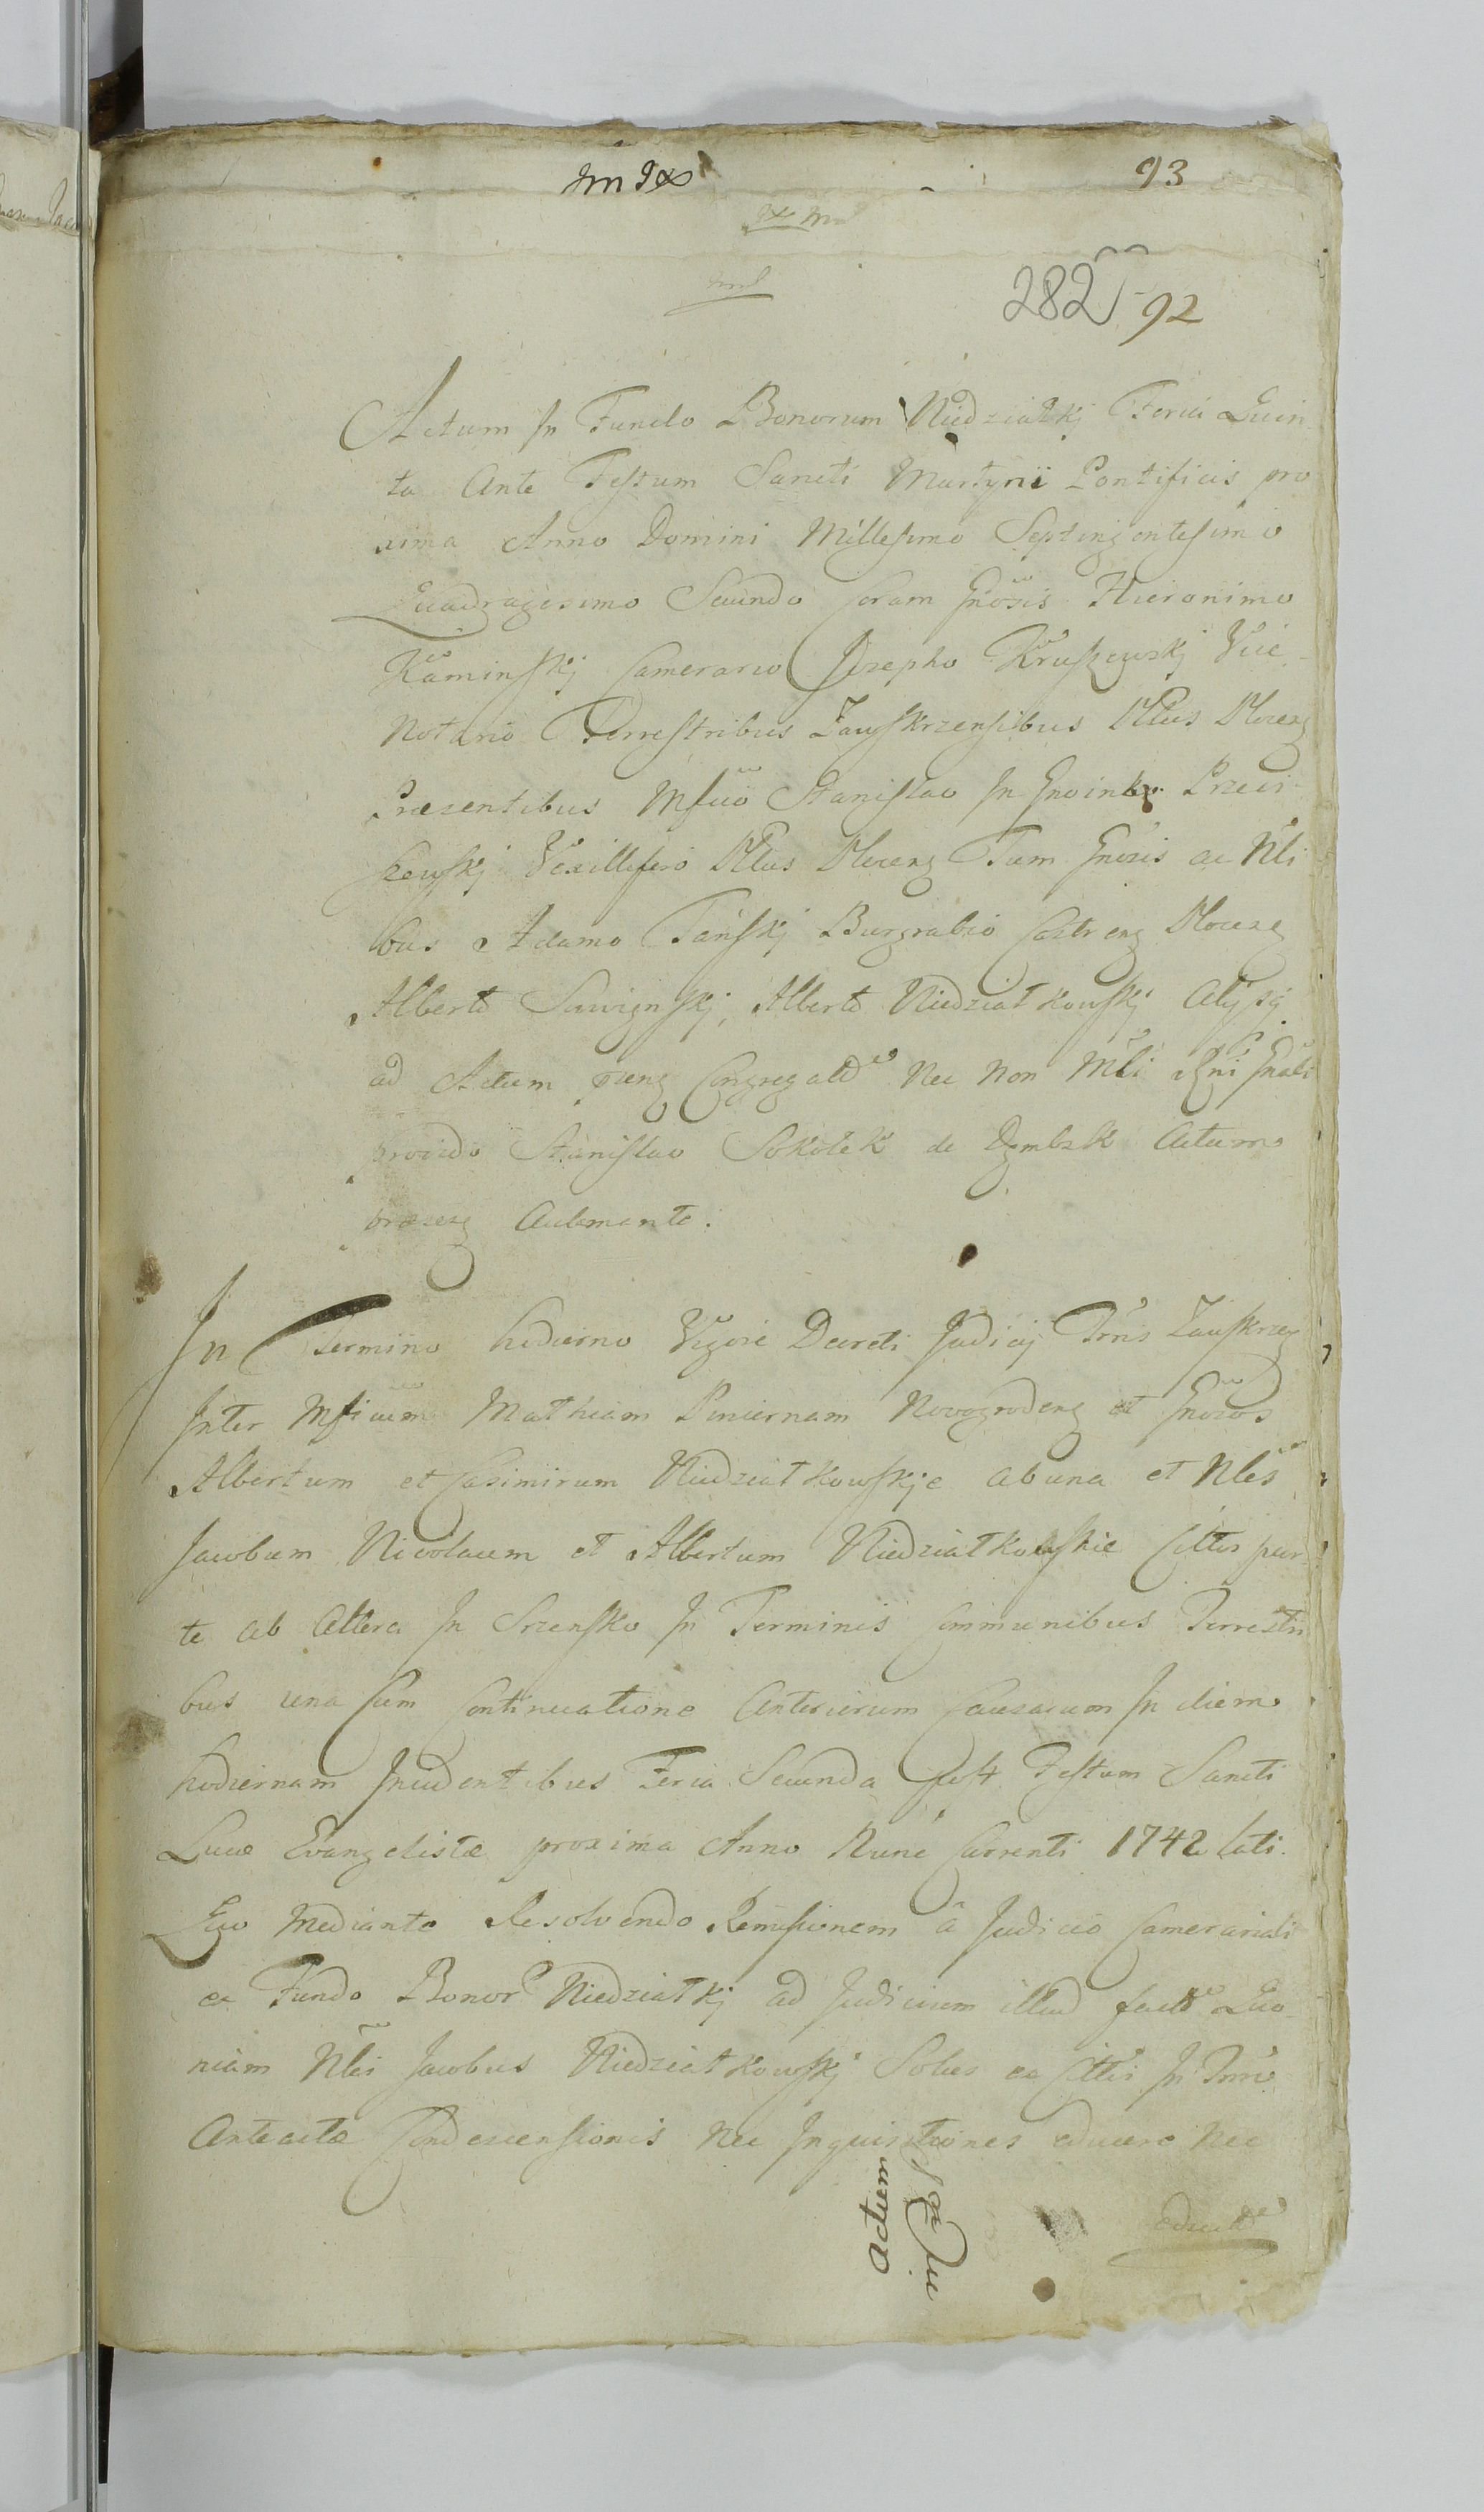 93
282 92
Actum In Fundo Bonorum Niedziałkj Feria Quin
ta Ante Festum Sancti Martyni Pontificis pro
xima Anno Domini Millesimo Septingentesimo
Quadragesimo Secundo Coram Gnosis Hieronimo
Kaminskj Camerario Josepho Kruszewskj Vice
Notario Terrestribus Zawskrzensibus Pttus Plocens
Praesentibus Mfico Stanislao In Gnoinko Przeci
szewskj Vexillifero Pttus Plocens Tum Gnosis ac Nli
bus Adamo Tańskj Burgrabio Castrens Plocens
Alberto Alberto Niedziałkowskj Alijsq
ad Actum praens Congregatis Nec Non Mtli Rgni Gnali
provido Stanislao Sokołek de Actum
praesens Aclamante.
In Termino hodierno Vigore Decreti Judicij Trris Zawskrzens
Inter Mficum Mathiam Pincernam Novogrodens et Gnosos
Albertum et Casimirum Niedziałkowskje ab una et Nles
Jacobum Nicolaum et Albertum Niedziałkowskie Cittos par
te ab Altera In Srzensko In Terminis Communibus Terrestri
bus una Cum Continuatione Anteriorum Causarum In diem
hodiernam Incidentibus Feria Secunda post Festum Sancti
Lucae Evangelistae proxima Anno Nunc Currenti 1742 lati
Quo Mediante Resolvendo Remissionem â Judicio Camerariali
ex Fundo Bonor Niedziałkj ad Judicium illud factâ Quo
niam Nlis Jacobus Niedziałkowskj Solus ex Cittis In Trmo
Anteactae Condescensionis Nec Inquisitiones educere Nec